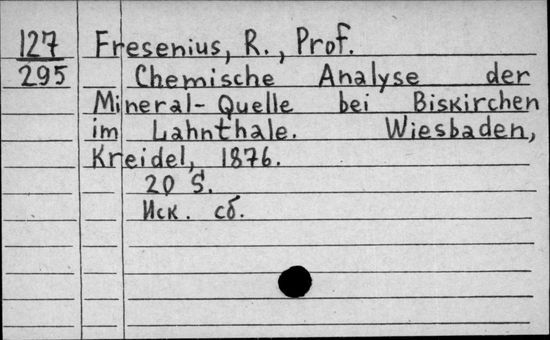 127 Fresenius, R., Prof.
295 Chemische Analyse der
Mineral-Quelle bei Biskirchen
im Lahnthale. Wiesbaden,
Kreidel, 1876.
20 S.
Иск. сб.